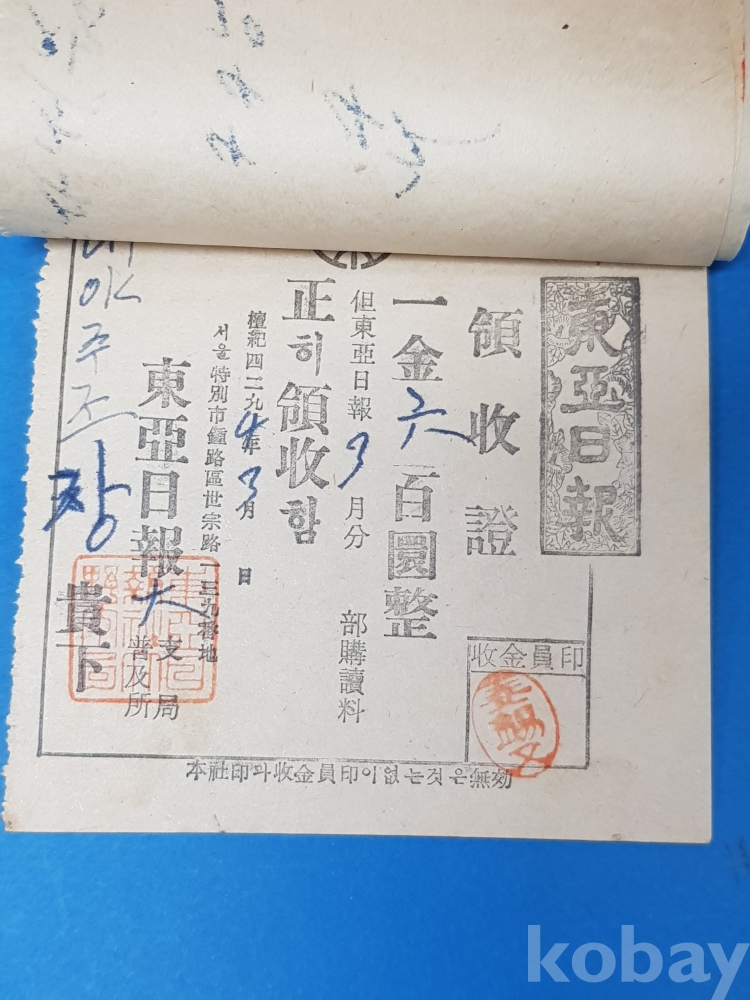 東亞日報
領收證
一金六百圜整
但東亞日報3月分 部購讀料
正히領收함
檀紀四二九4年3月 日
서울特別市鍾路區世宗路一三九番地
東亞日報大支局
普及所
주조장 貴下
收金員印
本社印과收金員印이없는것은無効
kobay